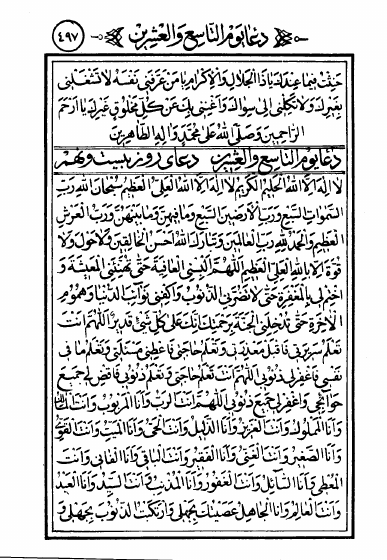 دعا يوم التاسع والعشرين ٤٩٧
جئت فيما عندك ياذا الجلال والاكرام يا من عرفني نفسه لا تشغلني
بغيرك ولا تكلني الى سواك واغنني بك عن كل مخلوق غيرك يا ارحم
الراحمين وصلى الله على محمد واله الطاهرين
دعا يوم التاسع والعشرين دعاى روز بيست ونهم
لا اله الا الله الحليم الكريم لا اله الا الله العلي العظيم سبحان الله رب
السموات السبع ورب الارضين السبع وما فيهن وما بينهن ورب العرش
العظيم والحمد لله رب العالمين وتبارك الله احسن الخالقين ولا حول ولا
قوة الا بالله العلي العظيم اللهم البسني العافية حتى تهنئني المعيشة و
اختم لي بالمغفرة حتى لا تضرني الذنوب واكفني نوائب الدنيا وهموم
الاخرة حتى تدخلني الجنة برحمتك انك على كل شئ قدير اللهم انت
تعلم سريرتي فاقبل معذرتي وتعلم حاجتي فاعطني مسئلتي وتعلم ما في
نفسي فاغفر لي ذنوبي اللهم انت تعلم حاجتي وتعلم ذنوبي فاقض لي جميع
حوائجي واغفر لي جميع ذنوبي اللهم انت الرب وانا المربوب وانت المالك
وانا المملوك وانت العزيز وانا الذليل وانت الحي وانا الميت وانت القوي
وانا الضعيف وانت الغني وانا الفقير وانت الباقي وانا الفاني وانت
المعطي وانا السائل وانت الغفور وانا المذنب وانت السيد وانا العبد
وانت العالم وانا الجاهل عصيتك بجهلي وارتكبت الذنوب بجهلي و